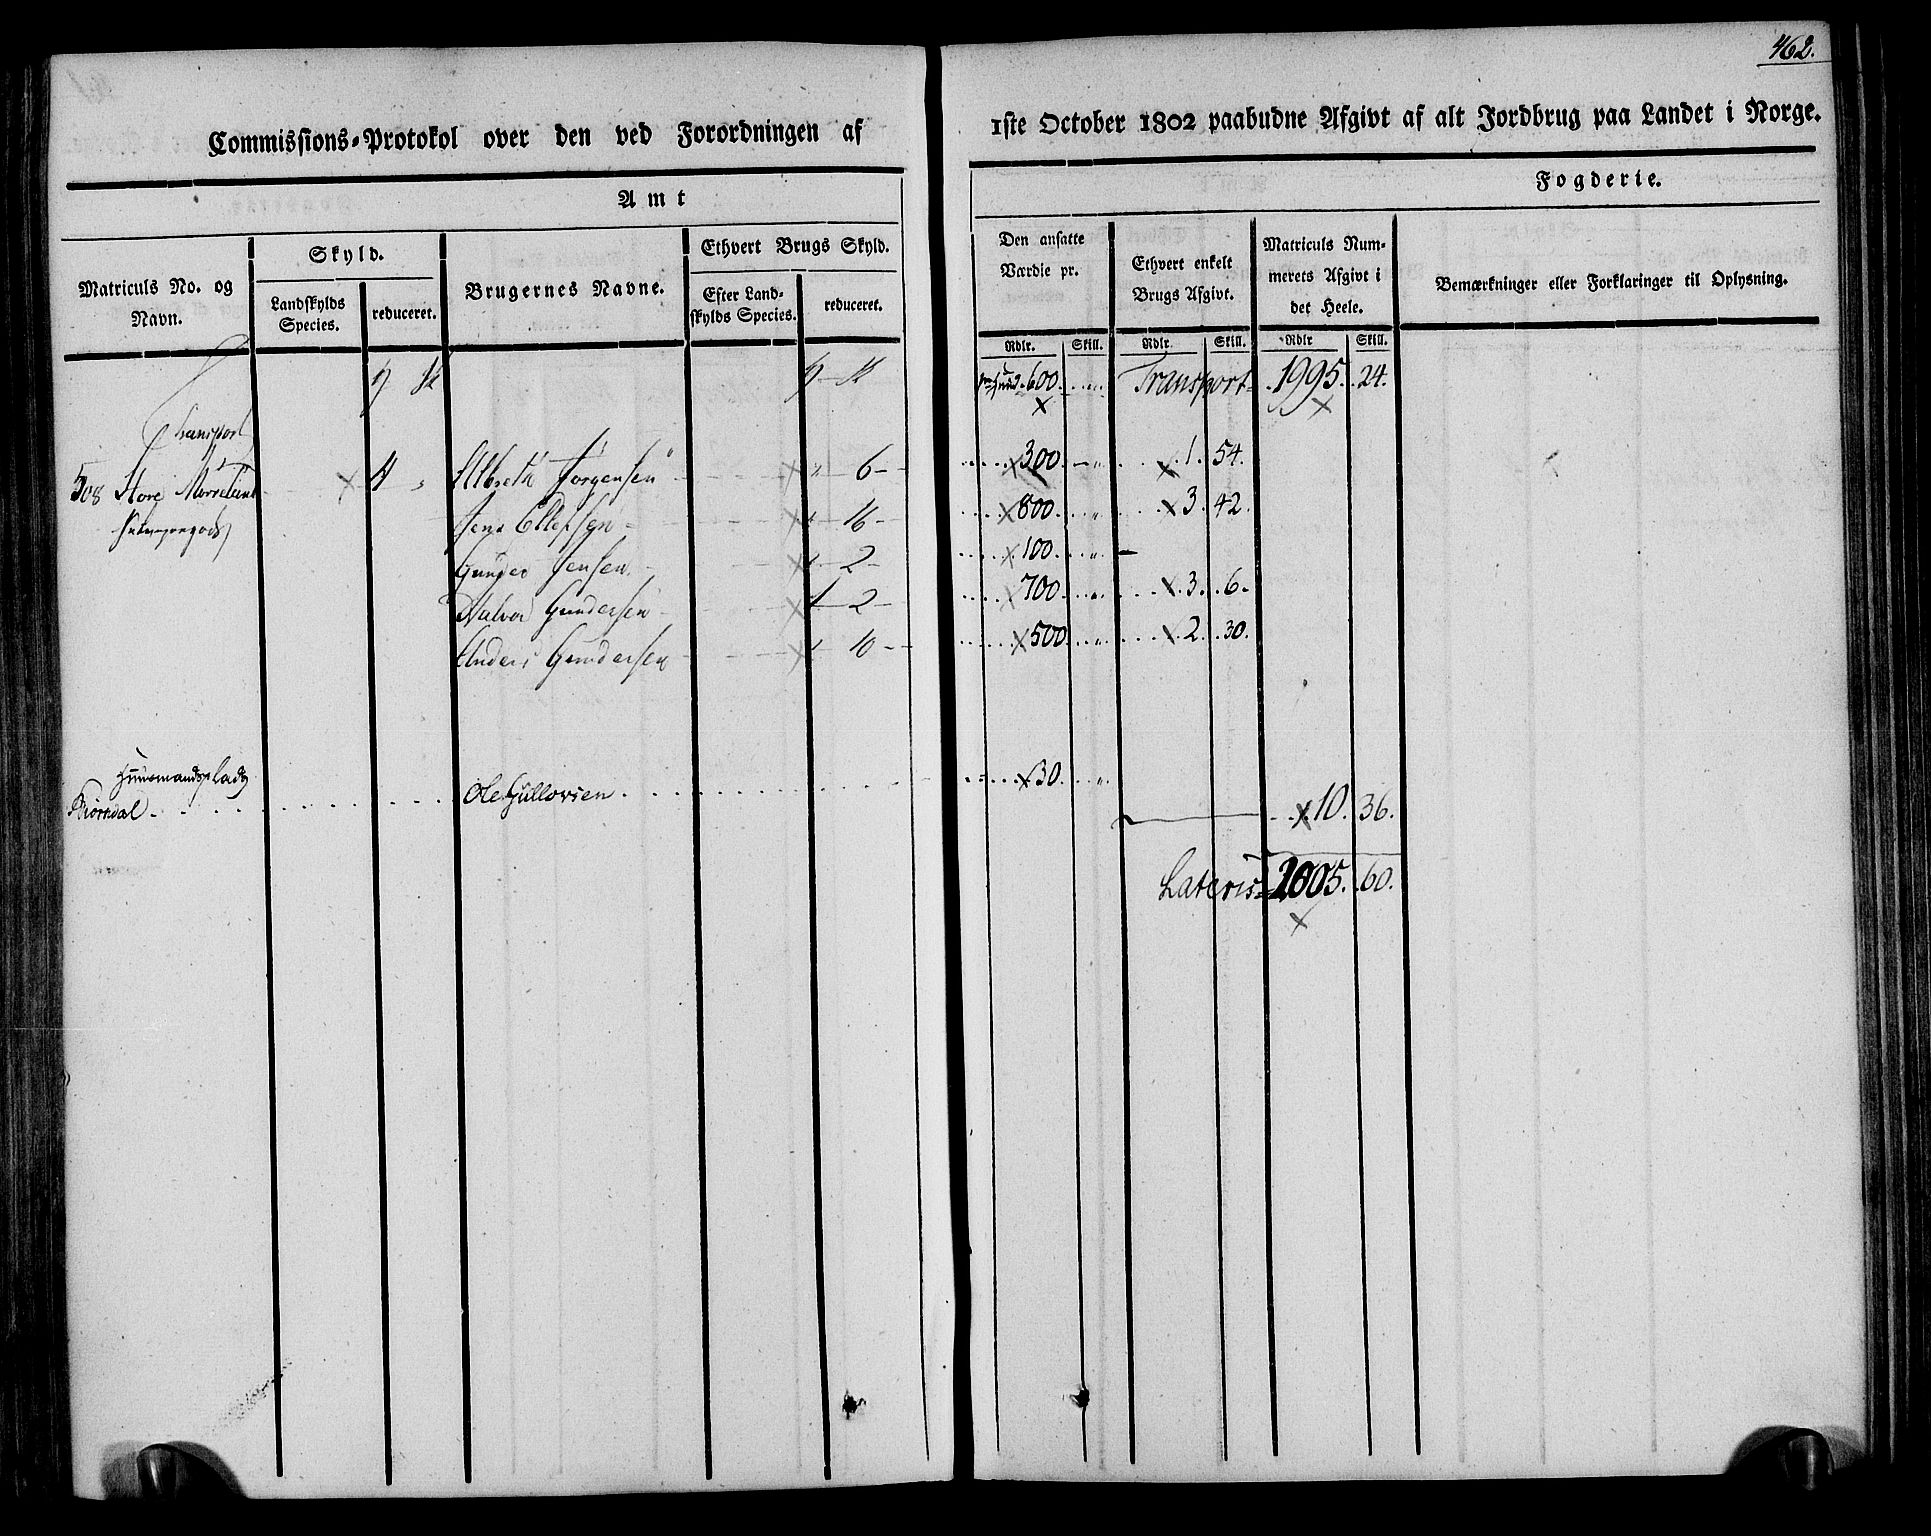 462.
Commissions-Protokol over den ved Forordningen af 1ste October 1802 paabudne Afgivt af alt Jordbrug paa Landet i Norge.
Amt
Fogderie.
Matriculs No. og Navn.
Skyld.
Landskylds Species.
reduceret.
Brugernes Navne.
Ethvert Brugs Skyld.
Efter Landskylds Species.
reduceret.
Den ansatte Værdie pr.
Ethvert enkelt Brugs Afgivt.
Matriculs Nummerets Afgivt i det Heele.
Bemærkninger eller Forklaringer til Oplysning.
Rdlr. Skill. Rdlr. Skill. Rdlr Skill.
600. Transport 1995. 24.
Transport
508 Store 4 Albreth Jørgensen 6 300. 1. 54.
Jens Ellefsen 16 800. 3. 42.
Gunder Jensen 2 100.
Halvor Gundersen 1 2 700. 3. 6
Anders Gundersen 10 500. 2. 30.
Huusmandsplads
Biørndal Ole Gullovsen 30.
10. 36.
Lateris 2005. 60.